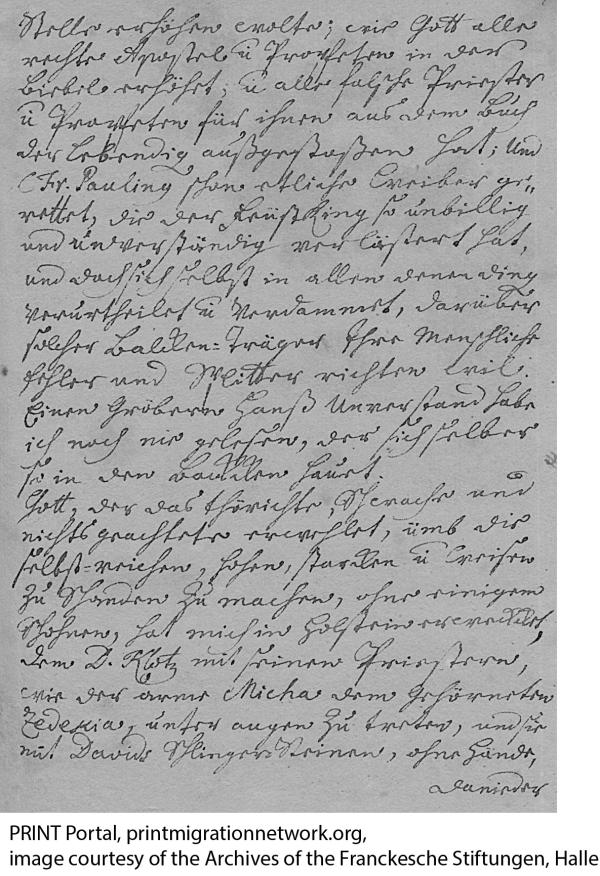 Stelle erhöhen wolte; wie Gott alle
rechte Apostel ū Propheten in der
Biebel erhöhet; ū alle falsche Priester
ū Propheten für ihnen aus dem Buch
der Lebendig außgestoßen hat; Und
Chr. Pauling schon etliche Weiber ge=
rettet, die der Feüstking so unbillig
und unverständig verlästert hat,
und doch sich selbst in allen denen ding
verurtheilet ū verdammet, darüber
solcher Balcken=Träger Ihre Menschliche
fehler und Splitter richten wil.
Einen Gröbern Hanß Unverstand habe
ich noch nie gelesen, der sich selber
so in den Backen hauet.
Gott, der das thörichte, Schwache und
nichts geachtete erwehlet, ümb die
selbst=reichen, hohen, starcken ū Weisen
zu Schanden zu machen, ohne einigem
Schohnen, hat mich in Holstein erwecket,
dem D. Klotz mit seinen Priestern,
wie der arme Micha dem Gehörneten
Zedekia, unter augen zu treten, und sie
mit Davids Schlinger=Steinen, ohne Hände,
danieder
PRINT Portal, printmigrationnetwork.org,
image courtesy of the Archives of the Franckesche Stiftungen, Halle